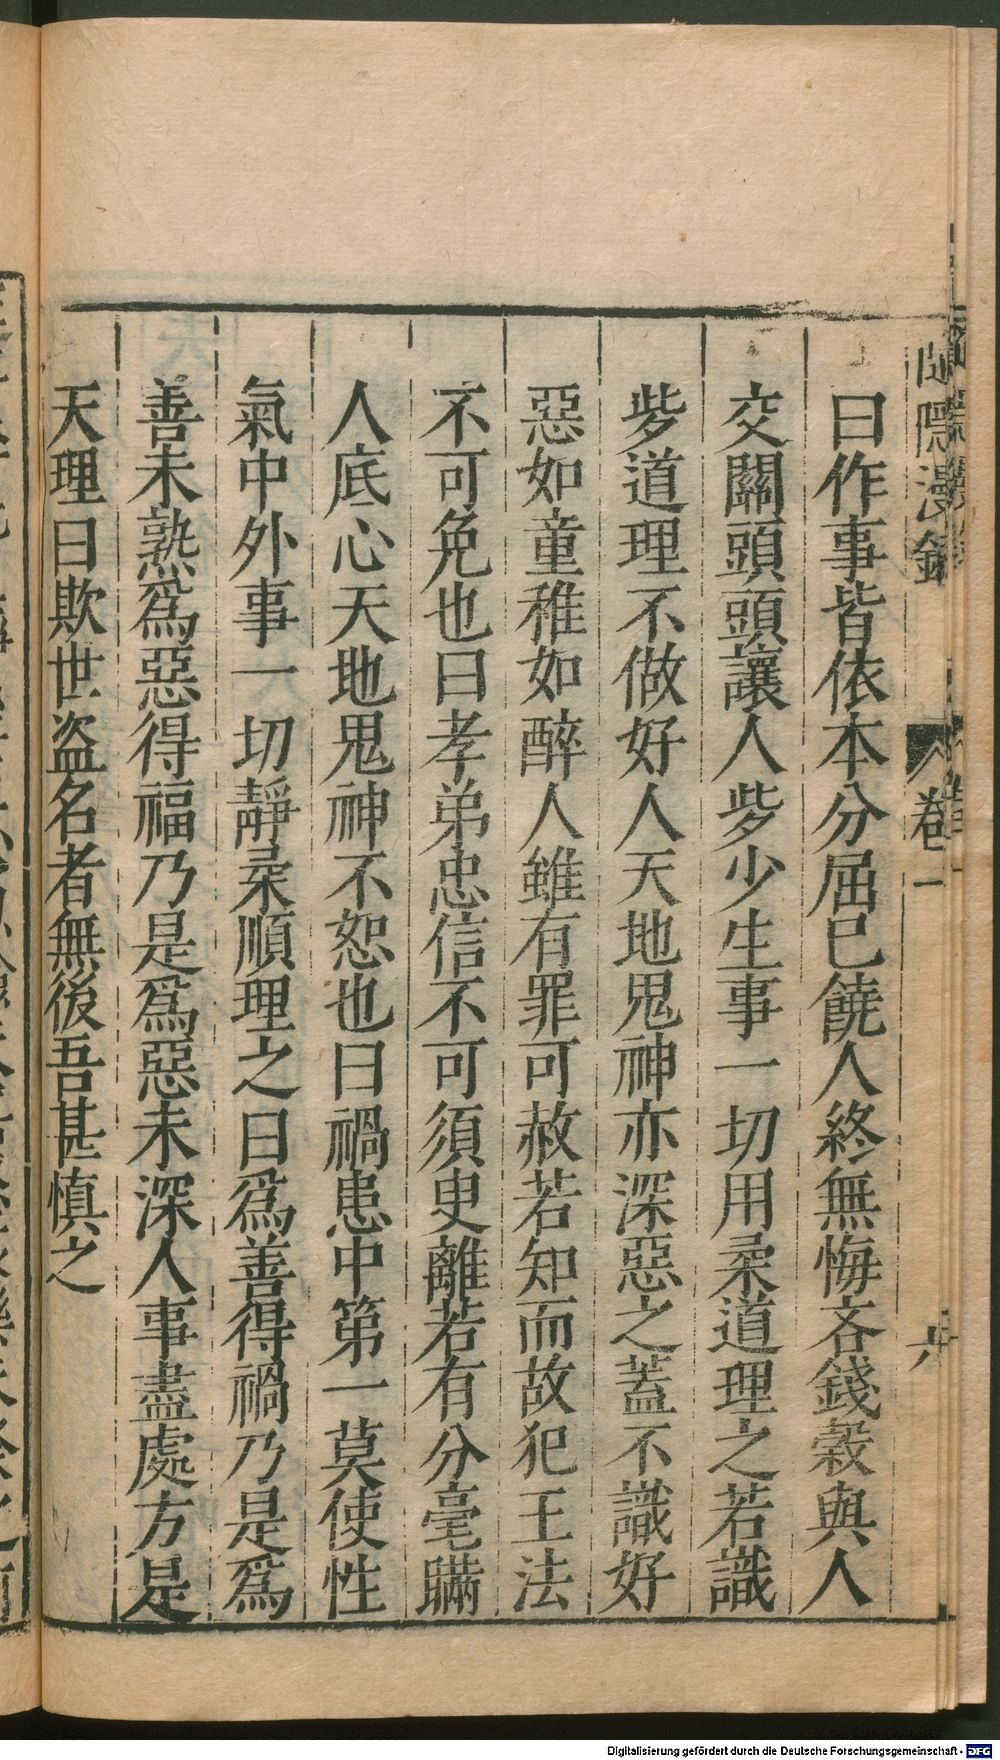 曰作事皆依本分屈已饒人終無悔吝錢穀與人
交關頭頭讓人些少生事一切用柔道理之若識
些道理不做好人天地鬼神亦深惡之蓋不識好
惡如童稚如醉人雖有罪可赦若知而故犯王法
不可免也曰孝弟忠信不可須臾離若有分毫瞞
人底心天地鬼神不恕也曰禍患中第一莫使性
氣中外事一切靜柔順理之曰爲善得禍乃是爲
善未熟爲惡得福乃是爲惡未深人事盡處方是
天理曰欺世盜名者無後吾甚慎之
隱漫錄 卷一
Digitalisierung gefördert durch die Deutsche Forschungsgemeinschaft - DFG